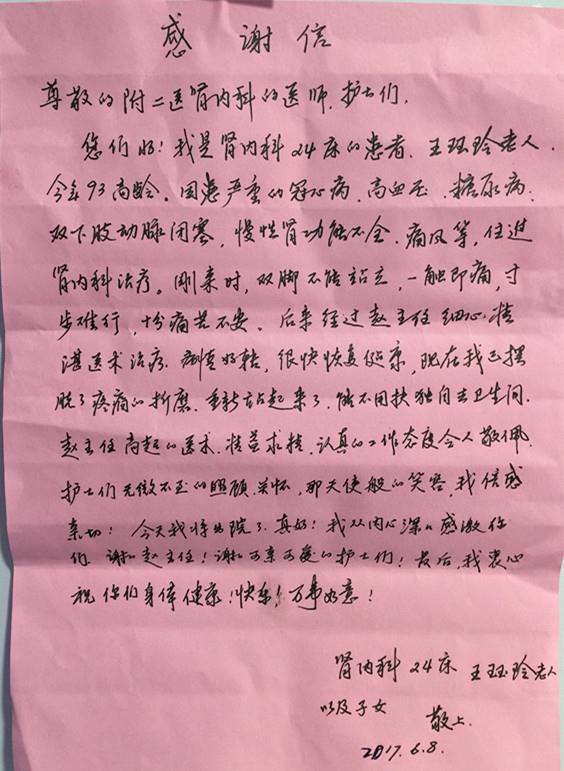 感谢信
尊敬的附二医肾内科的医师、护士们,
您们好!我是肾内科24床的患者、王珏玲老人.
今年93高龄。因患严重的冠心病、高血压、糖尿病、
双下肢动脉闭塞,慢性肾功能不全、痛风等,住进
肾内科治疗。刚来时,双脚不能站立,一触即痛,寸
步难行,十分痛苦不安。后来经过赵主任细心、精
湛医术治疗、病情好转,很快恢复健康,现在我已摆
脱了疼痛的折磨、重新站起来了,能不用扶独自去卫生间.
赵主任高超的医术、精益求精、认真的工作态度令人敬佩.
护士们无微不至的照顾、关怀,那天使般的笑容,我倍感
亲切!今天我将出院了、真好!我从内心深的感激你
们、谢谢赵主任!谢谢可亲可爱的护士们!最后,我衷心
祝你们身体健康!快乐!万事如意!
肾内科24床 王珏玲老人
以及子女
敬上.
2017.6.8.